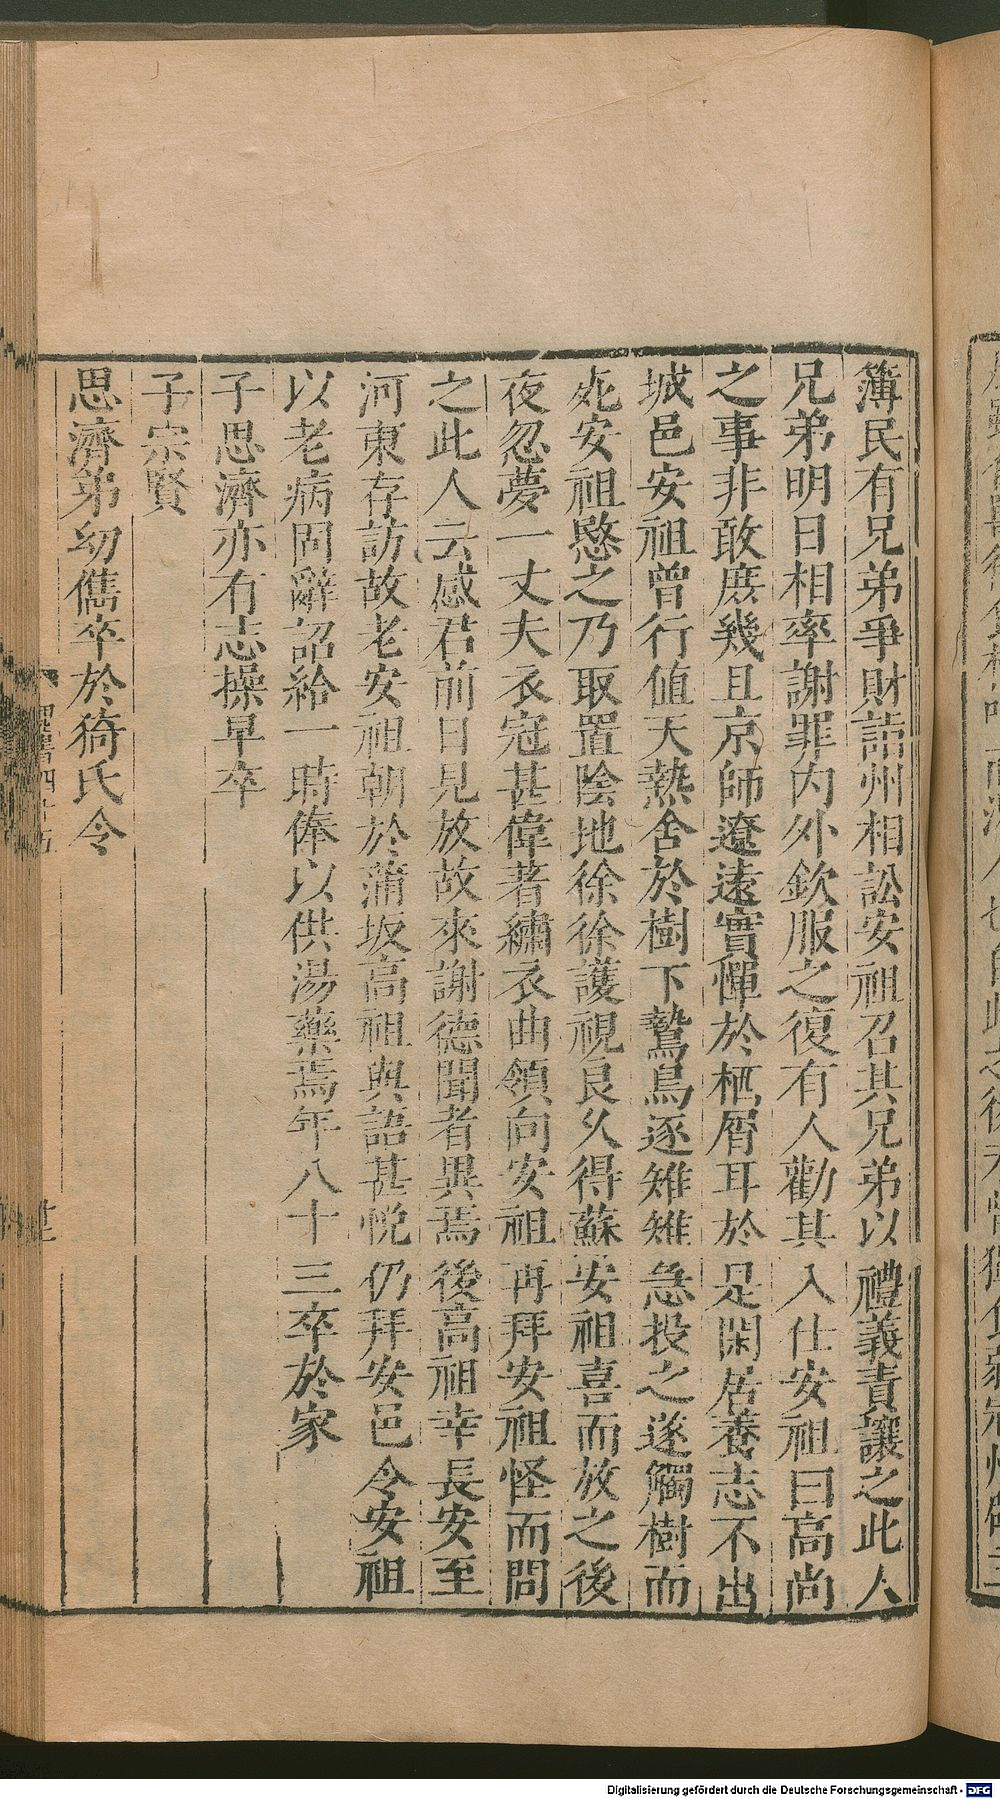 簿民有兄弟爭財詣州相訟安祖召其兄弟以禮義責讓之此人
兄弟明日相率謝罪内外欽服之復有人勸其入仕安祖曰高尚
之事非敢庶幾且京師遼遠實憚於栖屑耳於是閑居養志不出
城邑安祖曾行值天熱舍於樹下鷙鳥逐雉雉急投之遂觸樹而
死安祖愍之乃取置陰地徐徐護視良久得蘇安祖喜而放之後
夜忽夢一丈夫衣冠甚偉著繡衣曲領向安祖再拜安祖怪而問
之此人云感君前日見放故來謝德聞者異焉後高祖幸長安至
河東存訪故老安祖朝於蒲坂高祖與語甚悅仍拜安邑令安祖
以老病固辭詔給一時俸以供湯藥焉年八十三卒於家
子思濟亦有志操早卒
子宗賢
思濟弟幼儁卒於猗氏令
Digitalisierung gefördert durch die Deutsche Forschungsgemeinschaft - DFG